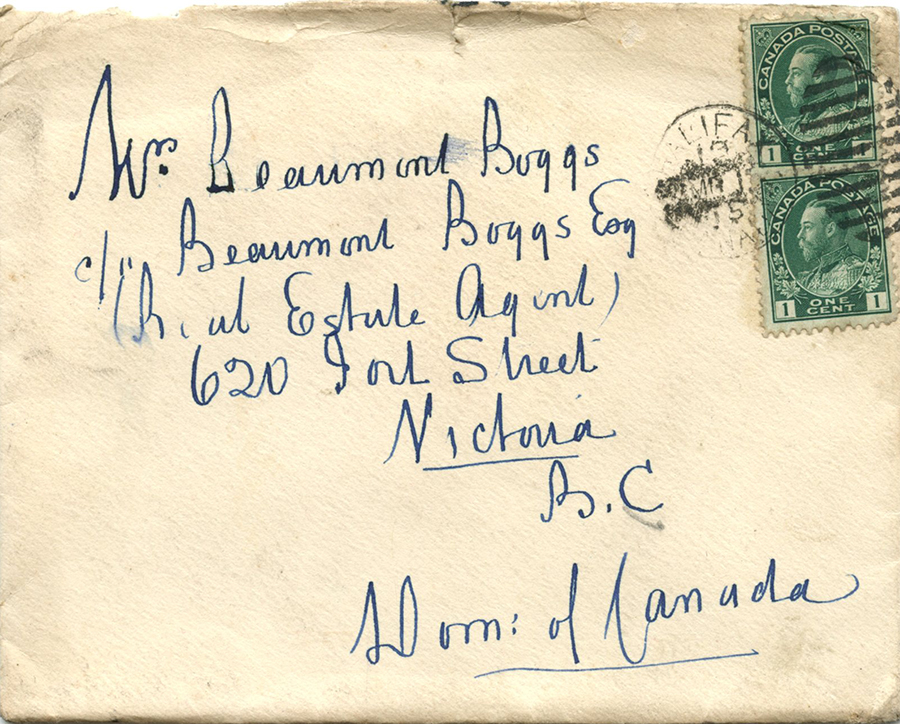 Mrs. Beaumont Boggs
c/o Beaumont Boggs Esq
(Real Estate Agent)
620 Fort Street
Victoria
B.C
Dom: of Canada
CANADA POSTAGE
1 ONE CENT 1
CANADA POSTAGE
1 ONE CENT 1
HALIFA
15